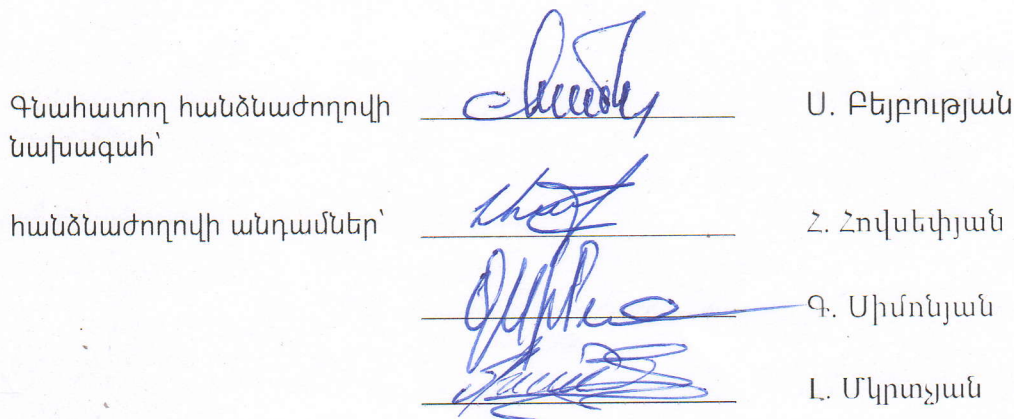 Գնահատող հանձնաժողովի Ս. Բեյբության
նախագահ՝
հանձնաժողովի անդամներ՝ Հ. Հովսեփյան
Գ. Սիմոնյան
Լ. Մկրտչյան